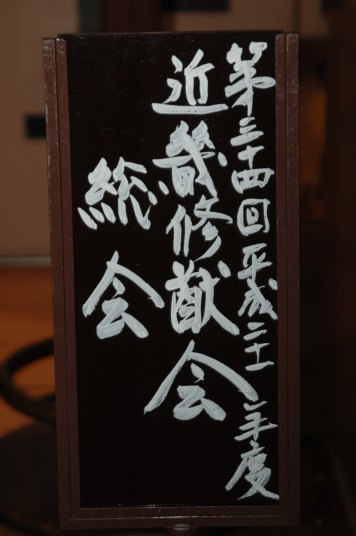 第三十四回平成二十二年度
近畿修猷会
総会